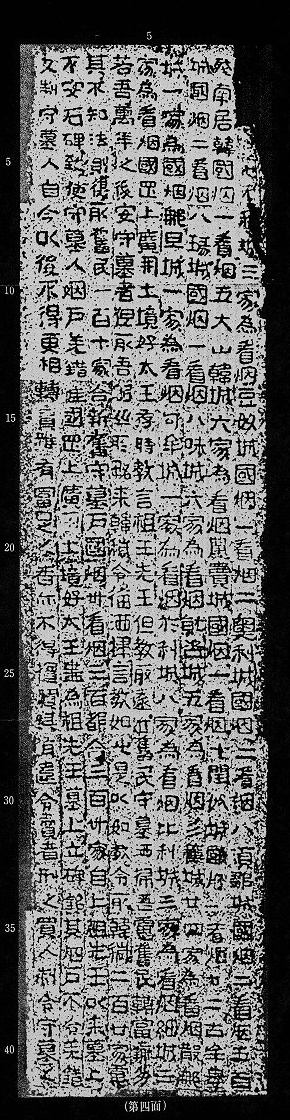 5
5
10
15
20
25
30
35
40
城三家為看烟豆奴城國烟一看烟二奧利城國烟二看烟八須鄒城國烟二看烟五百
殘南居韓國烟一看烟五大山韓城六家為看烟農賣城國烟一看烟七閏奴城國烟二看烟廿二古牟婁
城國烟二看烟八瑑城國烟一看烟八味城六家為看烟就咨城五家為看烟彡穰城廿四家為看烟散那
城一家為國烟那旦城一家為看烟勾牟城一家為看烟於利城八家為看烟比利城三家為看烟細城三
家為看烟國罡上廣開土境好太王存時教言祖王先王但教取遠近舊民守墓洒掃吾慮舊民轉當羸劣
若吾萬年之後安守墓者但取吾躬巡所略來韓穢令備洒掃言教如此是以如教令取韓穢二百廿家慮
其不知法則復取舊民一百十家合新舊守墓戶國烟卅看烟三百都合三百卅家自上祖先王以來墓上
不安石碑致使守墓人烟戶差錯唯國罡上廣開土境好太王盡為祖先王墓上立碑銘其烟戶不令差錯
又制守墓人自今以後不得更相轉賣雖有富足之者亦不得擅買其有違令賣者刑之買人制令守墓之
(第四面)